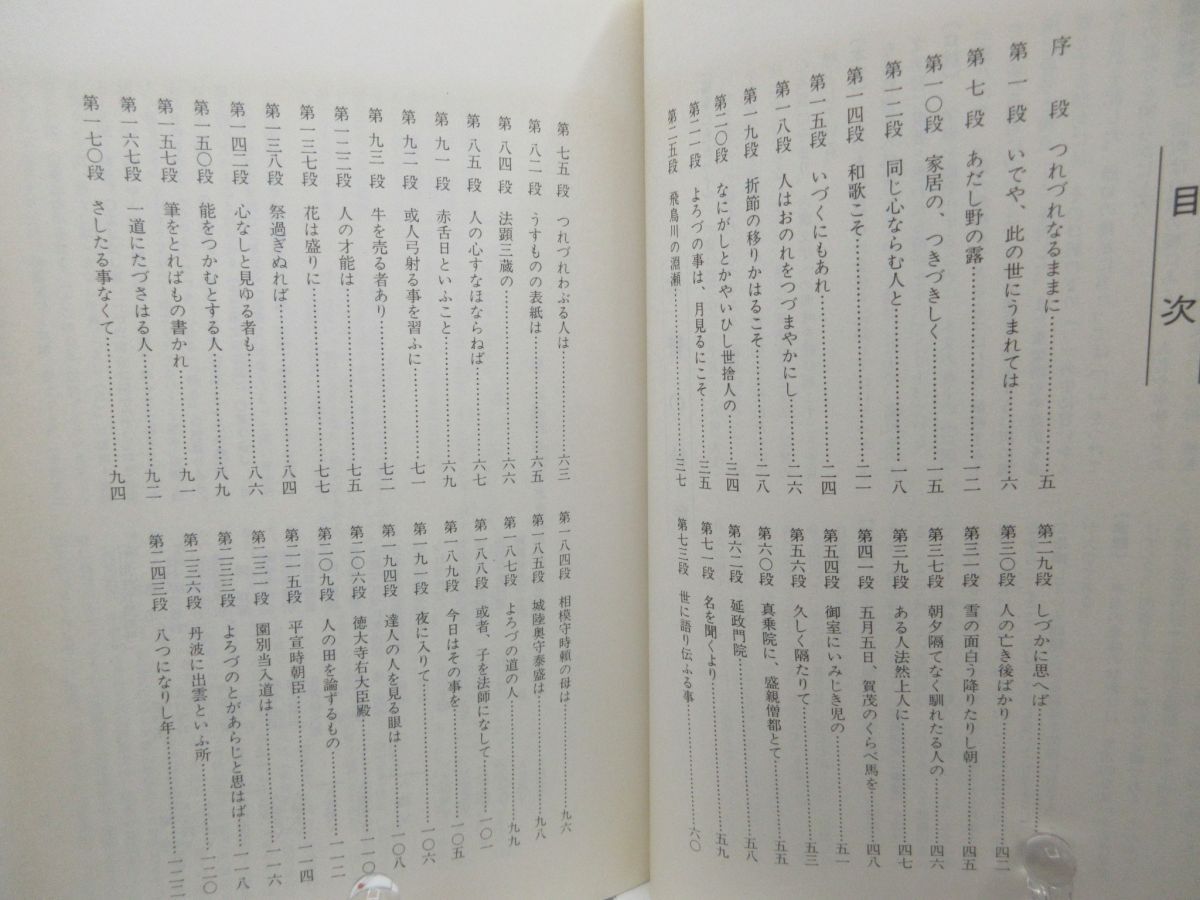 目次
序段 つれづれなるままに…………五
第一段 いでや、此の世にうまれては…………六
第七段 あだし野の露…………一二
第一〇段 家居の、つきづきしく…………一五
第一二段 同じ心ならむ人と…………一八
第一四段 和歌こそ…………二一
第一五段 いづくにもあれ…………二四
第一八段 人はおのれをつづまやかにし…………二六
第一九段 折節の移りかはるこそ…………二八
第二〇段 なにがしとかやいひし世捨人の…………三四
第二一段 よろづの事は、月見るにこそ…………三五
第二五段 飛鳥川の淵瀬…………三七
第二九段 しづかに思へば…………四二
第三〇段 人の亡き後ばかり…………四二
第三一段 雪の面白う降りたりし朝…………四五
第三七段 朝夕隔てなく馴れたる人の…………四六
第三九段 ある人法然上人に…………四七
第四一段 五月五日、賀茂のくらべ馬を…………四八
第五四段 御室にいみじき児の…………五一
第五六段 久しく隔たりて…………五三
第六〇段 真乗院に、盛親僧都とて…………五五
第六二段 延政門院…………五八
第七一段 名を聞くより…………五九
第七三段 世に語り伝ふる事…………六〇
第七五段 つれづれわぶる人は…………六三
第八二段 うすものの表紙は…………六五
第八四段 法顕三蔵の…………六六
第八五段 人の心すなほならねば…………六七
第九一段 赤舌日といふこと…………六九
第九二段 或人弓射る事を習ふに…………七一
第九三段 牛を売る者あり…………七二
第一二二段 人の才能は…………七五
第一三七段 花は盛りに…………七七
第一三八段 祭過ぎぬれば…………八四
第一四二段 心なしと見ゆる者も…………八六
第一五〇段 能をつかむとする人…………八九
第一五七段 筆をとればもの書かれ…………九一
第一六七段 一道にたづさはる人…………九二
第一七〇段 さしたる事なくて…………九四
第一八四段 相模守時頼の母は…………九六
第一八五段 城陸奥守泰盛は…………九八
第一八七段 よろづの道の人…………九九
第一八八段 或者、子を法師になして…………一〇一
第一八九段 今日はその事を…………一〇五
第一九一段 夜に入りて…………一〇六
第一九四段 達人の人を見る眼は…………一〇八
第二〇六段 徳大寺右大臣殿…………一一〇
第二〇九段 人の田を論ずるもの…………一一二
第二一五段 平宣時朝臣…………一一四
第二三一段 園別当入道は…………一一六
第二三三段 よろづのとがあらじと思はば…………一一八
第二三六段 丹波に出雲といふ所…………一二〇
第二四三段 八つになりし年…………一二二